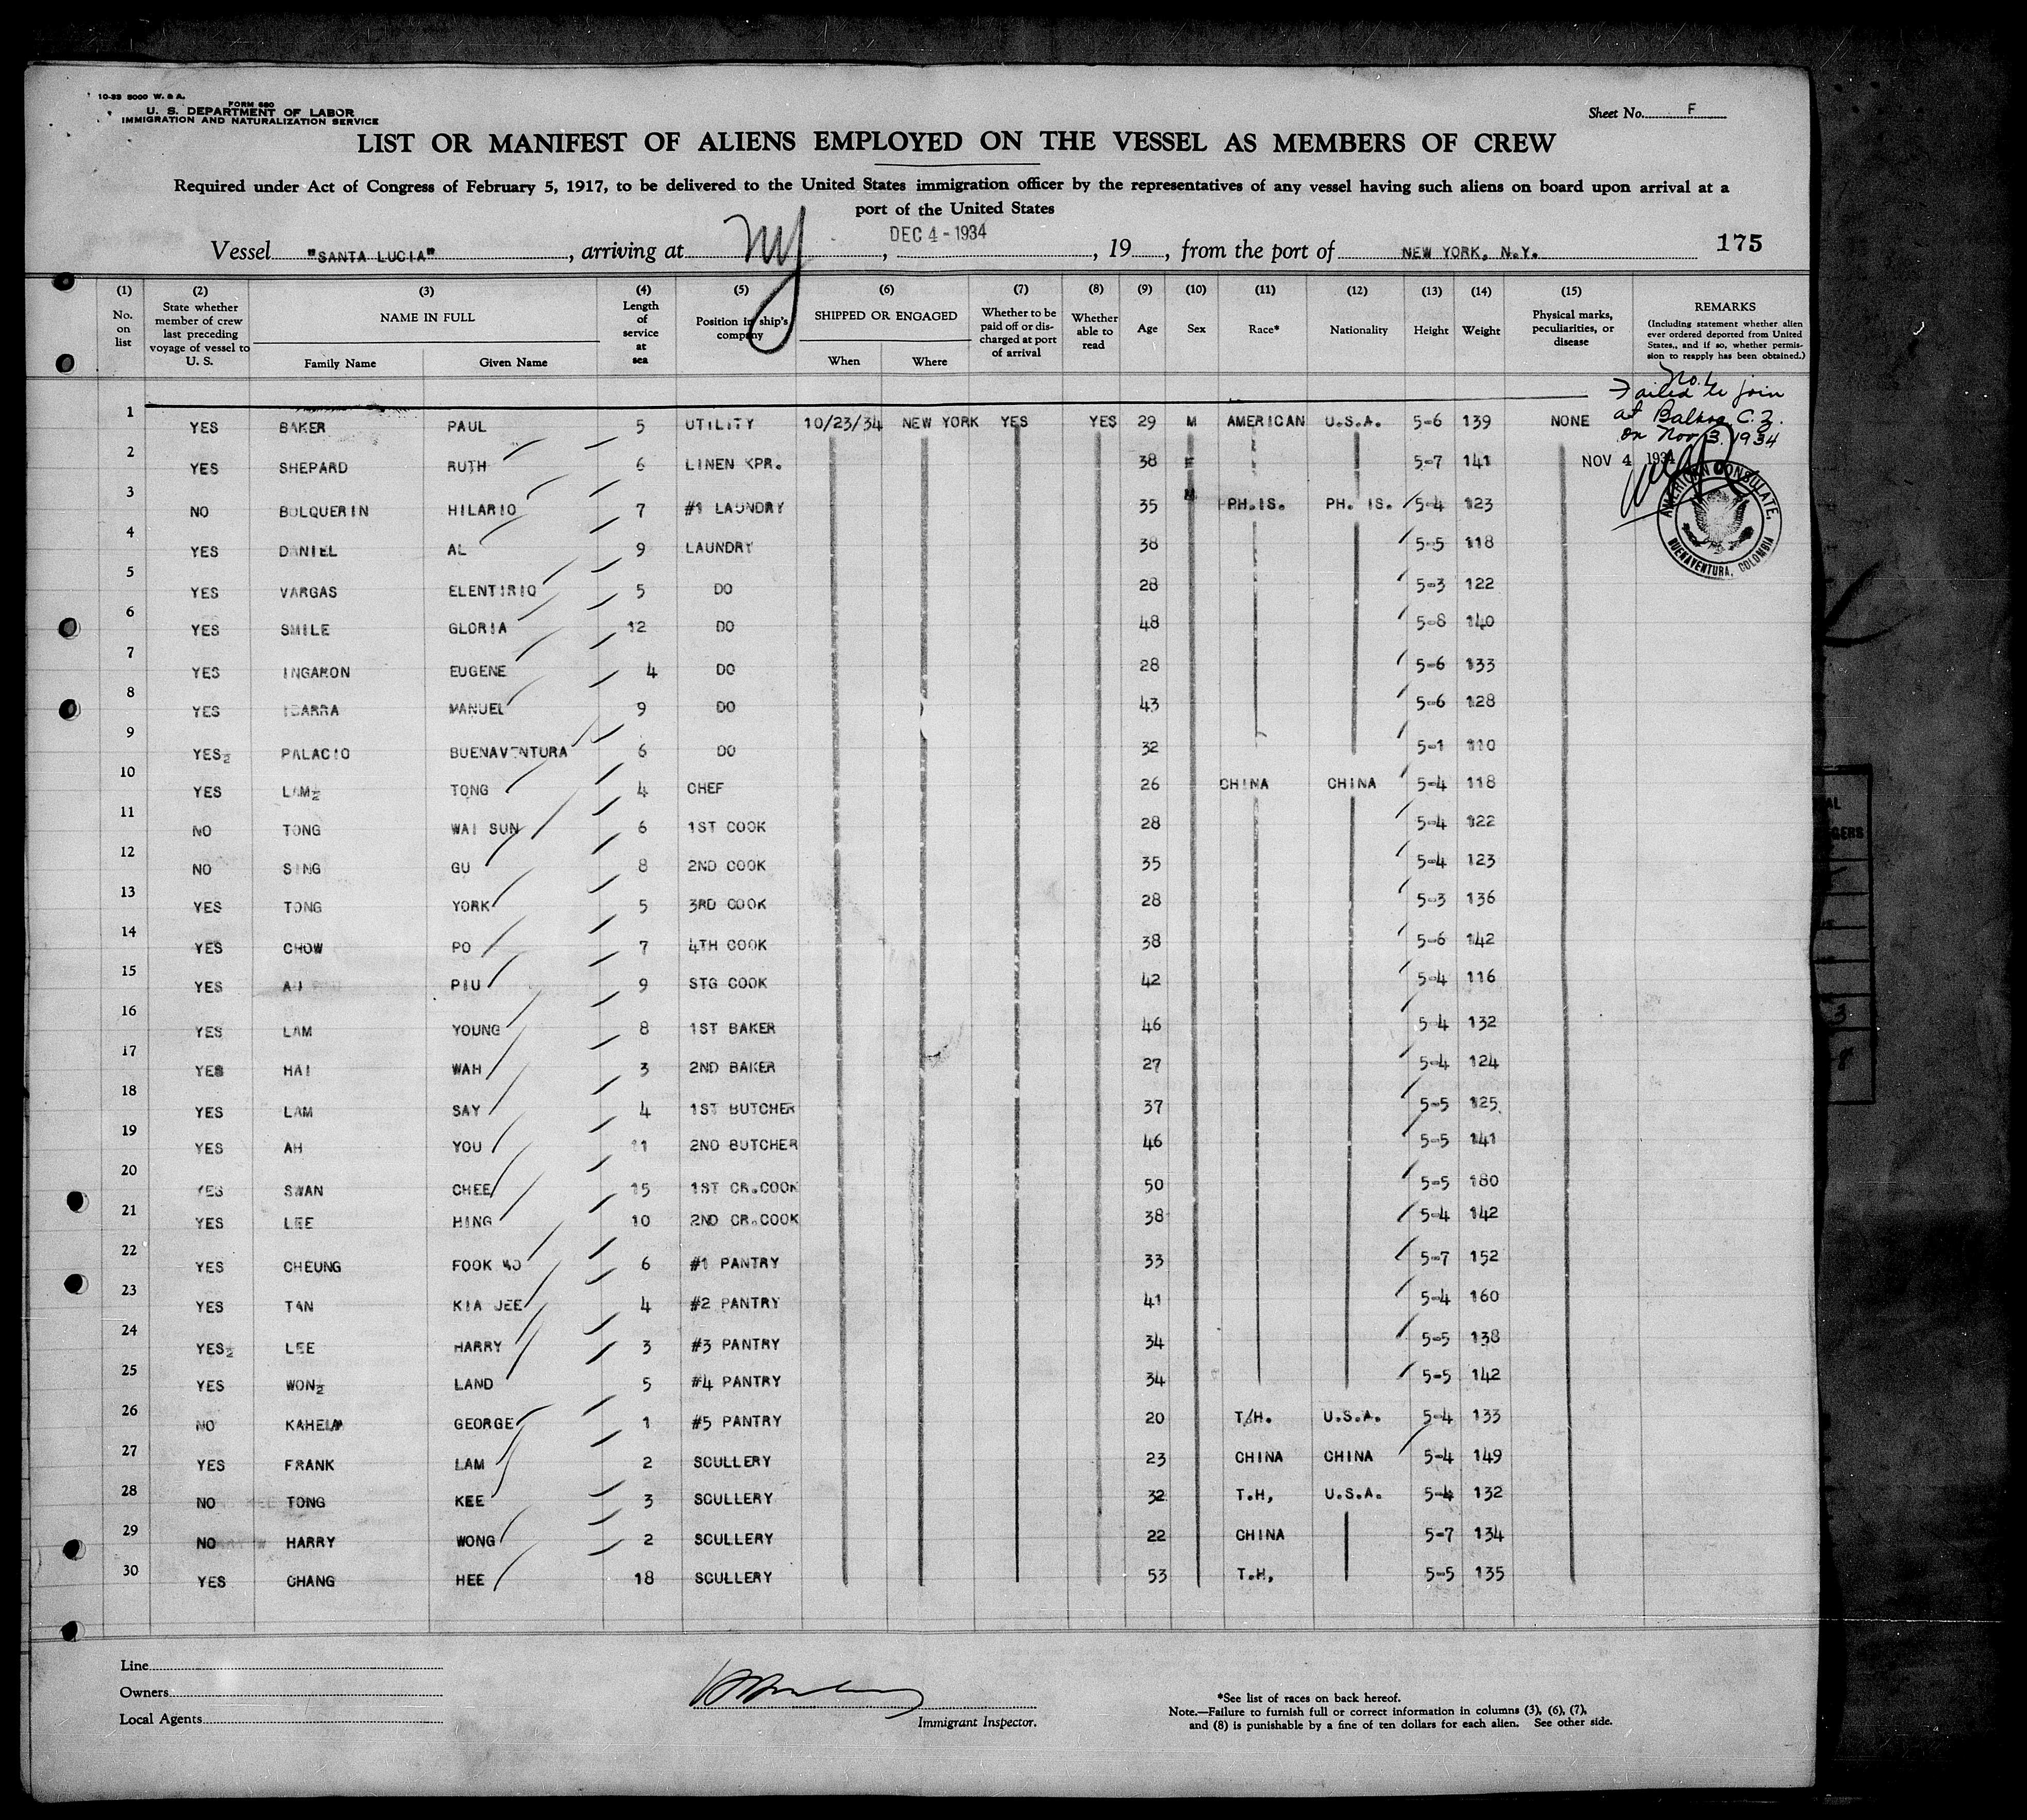 10-33 5000 W. & A.
FORM 680
U. S. DEPARTMENT OF LABOR
IMMIGRATION AND NATURALIZATION SERVICE
Sheet No. F
LIST OR MANIFEST OF ALIENS EMPLOYED ON THE VESSEL AS MEMBERS OF CREW
Required under Act of Congress of February 5, 1917, to be delivered to the United States immigration officer by the representatives of any vessel having such aliens on board upon arrival at a
port of the United States
Vessel "SANTA LUCIA", arriving at NY, DEC 4 - 1934, 19, from the port of NEW YORK, N.Y. 175
(1) (2) (3) (4) (5) (6) (7) (8) (9) (10) (11) (12) (13) (14) (15)
No. on list
State whether member of crew last preceding voyage of vessel to U. S.
NAME IN FULL
Family Name Given Name
Length of service at sea
Position in ship's company
SHIPPED OR ENGAGED
When Where
Whether to be paid off or discharged at port of arrival
Whether able to read
Age Sex Race* Nationality Height Weight
Physical marks, peculiarities, or disease
REMARKS
(Including statement whether alien ever ordered deported from United States, and if so, whether permission to reapply has been obtained.)
No. 1
Failed to join
at Balboa C.Z.
on Nov 3. 1934
1 YES BAKER PAUL 5 UTILITY 10/23/34 NEW YORK YES YES 29 M AMERICAN U.S.A. 5-6 139 NONE
2 YES SHEPARD RUTH 6 LINEN KPR. 38 F 5-7 141
NOV 4 1934
AMERICAN CONSULATE,
BUENAVENTURA, COLOMBIA
3 NO BOLQUERIN HILARIO 7 #1 LAUNDRY 35 M PH.IS. PH. IS. 5-4 123
4 YES DANIEL AL 9 LAUNDRY 38 5-5 118
5 YES VARGAS ELENTIRIO 5 DO 28 5-3 122
6 YES SMILE GLORIA 12 DO 48 5-8 140
7 YES INGARON EUGENE 4 DO 28 5-6 133
8 YES IBARRA MANUEL 9 DO 43 5-6 128
9 YES PALACIO BUENAVENTURA 6 DO 32 5-1 110
10 YES LAM TONG 4 CHEF 26 CHINA CHINA 5-4 118
11 NO TONG WAI SUN 6 1ST COOK 28 5-4 122
12 NO SING GU 8 2ND COOK 35 5-4 123
13 YES TONG YORK 5 3RD COOK 28 5-3 136
14 YES CHOW PO 7 4TH COOK 38 5-6 142
15 YES PIU 9 STG COOK 42 5-4 116
16 YES LAM YOUNG 8 1ST BAKER 46 5-4 132
17 YES HAI WAH 3 2ND BAKER 27 5-4 124
18 YES LAM SAY 4 1ST BUTCHER 37 5-5 125
19 YES AH YOU 11 2ND BUTCHER 46 5-5 141
20 YES SWAN CHEE 15 1ST CR.COOK 50 5-5 180
21 YES LEE HING 10 2ND CR.COOK 38 5-4 142
22 YES CHEUNG FOOK WO 6 #1 PANTRY 33 5-7 152
23 YES TAN KIA JEE 4 #2 PANTRY 41 5-4 160
24 YES LEE HARRY 3 #3 PANTRY 34 5-5 138
25 YES WON LAND 5 #4 PANTRY 34 5-5 142
26 NO KAHELA GEORGE 1 #5 PANTRY 20 T/H. U.S.A. 5-4 133
27 YES FRANK LAM 2 SCULLERY 23 CHINA CHINA 5-4 149
28 NO TONG KEE 3 SCULLERY 32 T.H, U.S.A. 5-4 132
29 NO HARRY WONG 2 SCULLERY 22 CHINA 5-7 134
30 YES CHANG HEE 18 SCULLERY 53 T.H, 5-5 135
Line
Owners
Local Agents
Immigrant Inspector.
*See list of races on back hereof.
Note.—Failure to furnish full or correct information in columns (3), (6), (7),
and (8) is punishable by a fine of ten dollars for each alien. See other side.